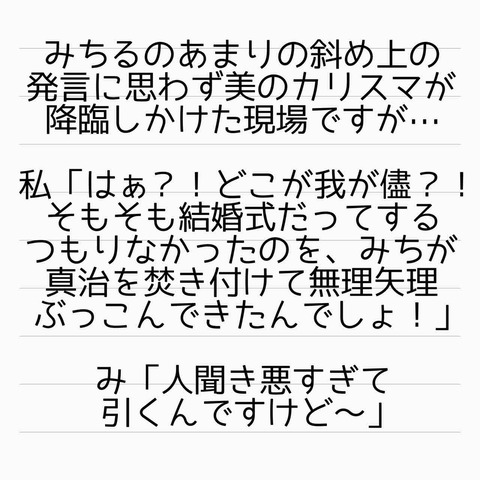 みちるのあまりの斜め上の
発言に思わず美のカリスマが
降臨しかけた現場ですが…
私「はぁ？！どこが我が儘？！
そもそも結婚式だってする
つもりなかったのを、みちが
真治を焚き付けて無理矢理
ぶっこんできたんでしょ！」
み「人聞き悪すぎて
引くんですけど〜」